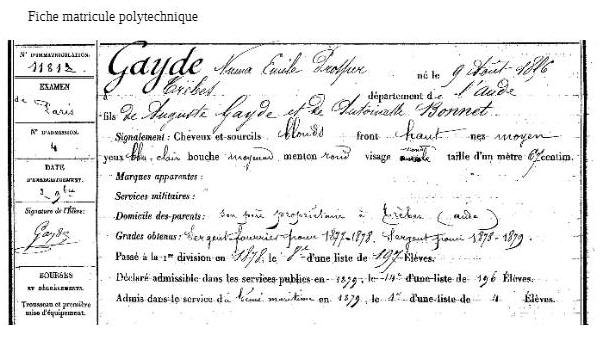 Fiche matricule polytechnique
N° D'IMMATRICULATION.
11812
EXAMEN
de Paris
N° D'ADMISSION.
4
DATE
D'ENREGISTREMENT.
Signature de l'Élève:
Gayde
BOURSES
ET DÉGRÈVEMENTS.
Trousseau et première
mise d'équipement.
Gayde Numa Emile Prosper né le 9 Août 1856
à Trèbes département d l'Aude
fils de Auguste Gayde et de Antoinette Bonnet
Signalement: Cheveux et sourcils blonds front haut nez moyen
yeux bleu clair bouche moyenne menton rond visage taille d'un mètre 67 centim.
Marques apparentes:
Services militaires:
Domicile des parents: son père propriétaire à Trèbes (aude)
Grades obtenus: Sergent fourrier pour 1877-1878. Sergent pour 1878-1879.
Passé à la 1re division en 1878, le 8e d'une liste de 197 Élèves.
Déclaré admissible dans les services publics en 1879, le 14e d'une liste de 196 Élèves.
Admis dans le service du Génie maritime en 1879, le d'une liste de 4 Élèves.